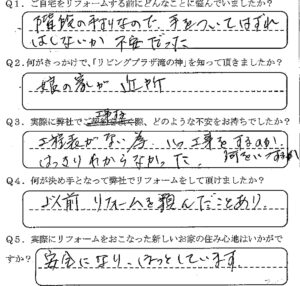 Q1. ご自宅をリフォームする前にどんなことに悩んでいましたか?
階段の手すりなので、手をついてはずれ
はしないか 不安だった
Q2. 何がきっかけで、「リビングプラザ滝の神」を知って頂きましたか?
娘の家が近所
Q3. 実際に弊社で 工事 際、どのような不安をお持ちでしたか?
工程表がない為 いつ工事をするのか
はっきりわからなかった。 何をいつするか
Q4. 何が決め手となって弊社でリフォームをして頂けましたか?
以前 リフォームを頼んだことあり
Q5. 実際にリフォームをおこなった新しいお家の住み心地はいかがで
すか? 安全になり、ほっとしています。